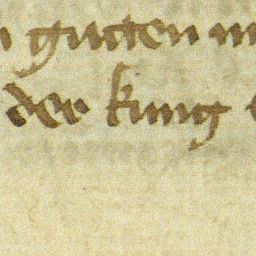 gutten
der kung